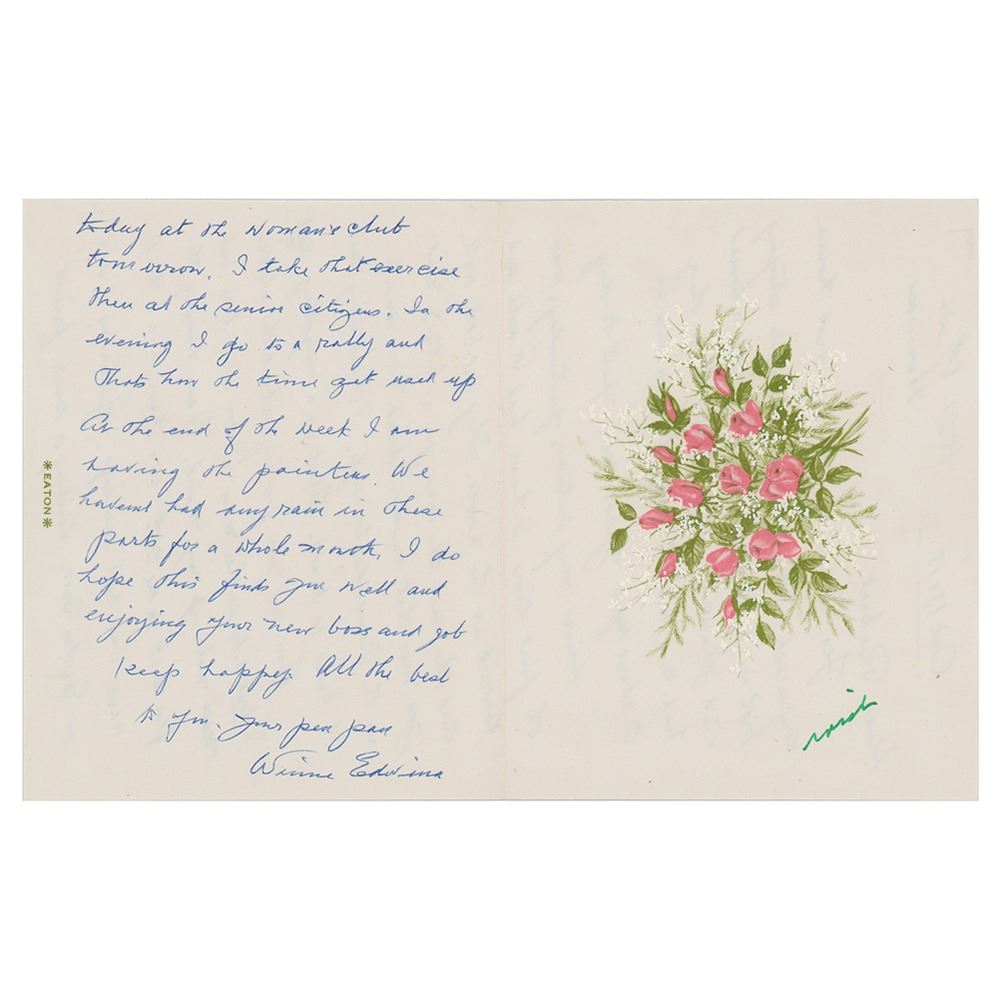 today at the Woman's club
tomorrow. I take that exercise
then at the senior citizens. In the
evening I go to a rally and
Thats how the time get used up
At the end of the week I am
having the painters. We
havent had any rain in these
parts for a whole month. I do
hope this finds you well and
enjoying your new boss and job
keep happy. All the best
to you. Your pen pal
Edwina
*EATON*